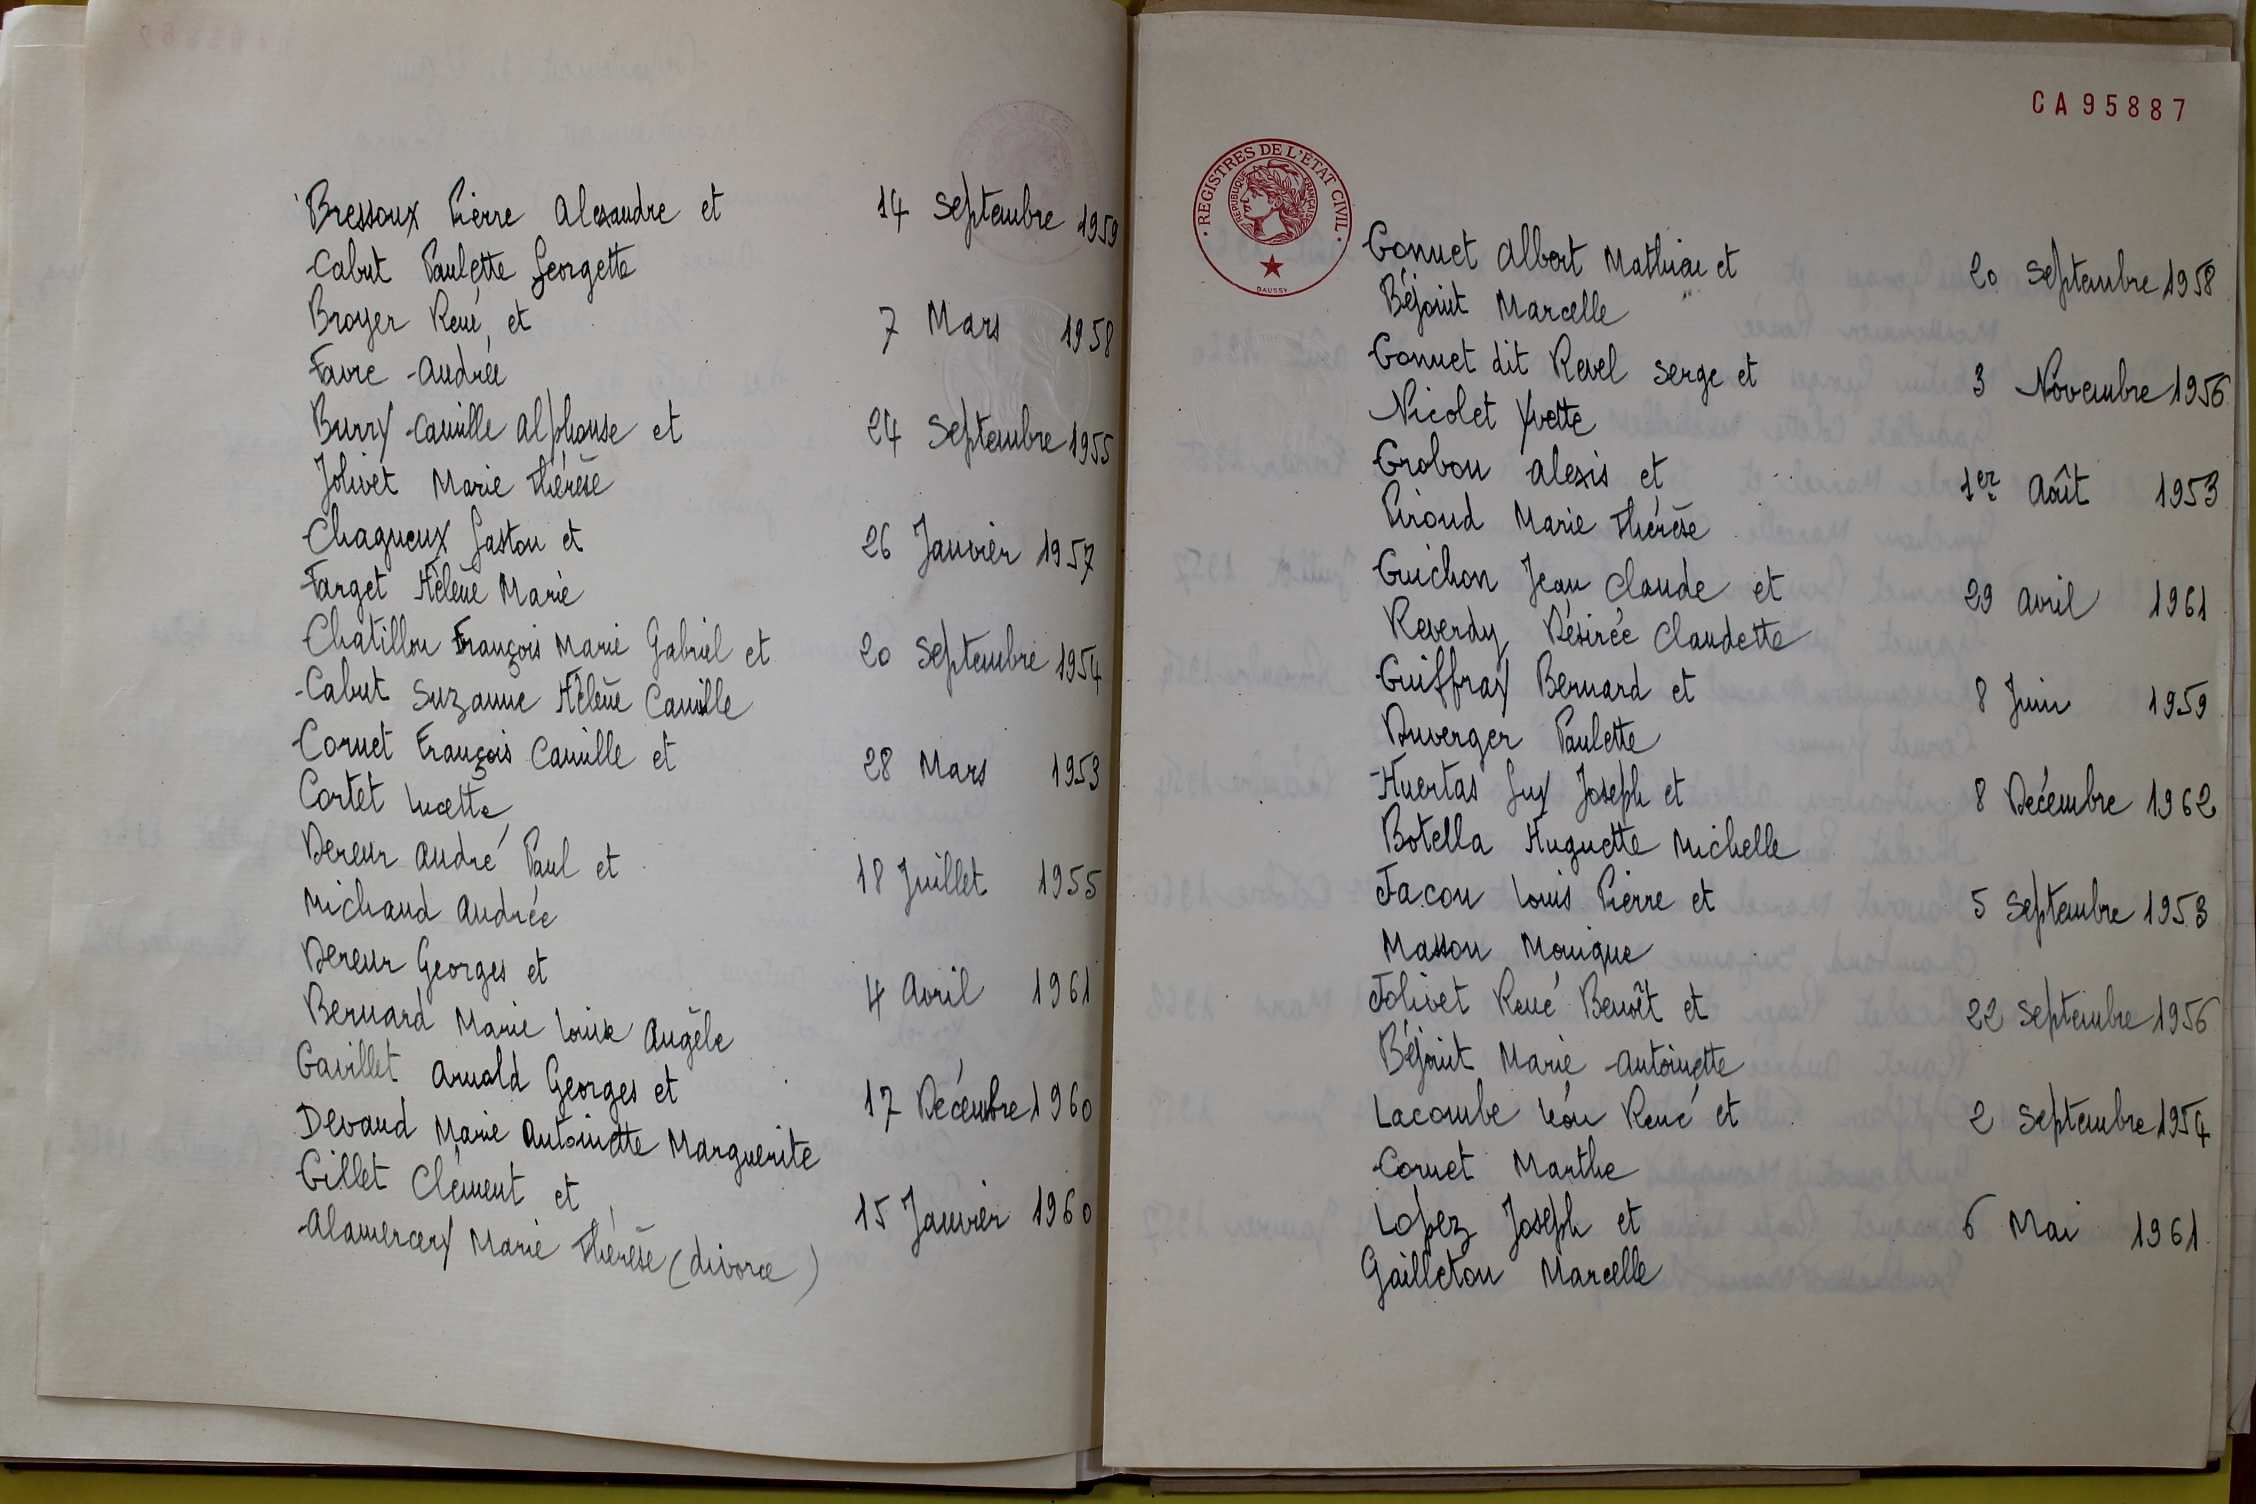 Bressoux Pierre Alexandre et 14 Septembre 1959
Cabut Paulette Georgette
Broyer René et 7 Mars 1958
Favre Andrée
Burry Camille Alphonse et 24 Septembre 1955
Jolivet Marie Thérèse
Chagneux Gaston et 26 Janvier 1957
Farget Hélène Marie
Chatillon François Marie Gabriel et 20 Septembre 1954
Cabut Suzanne Hélène Camille
Cornet François Camille et 28 Mars 1953
Cortet Lucette
Dereur André Paul et 18 Juillet 1955
Michaud Andrée
Dereur Georges et 4 Avril 1961
Bernard Marie Louise Angèle
Gavillet Arnold Georges et 17 Décembre 1960
Devaud Marie Antoinette Marguerite
Gillet Clément et 15 Janvier 1960
Alamercery Marie Thérèse (divorce)
CA95887
REGISTRES DE L'ETAT CIVIL
REPUBLIQUE FRANÇAISE
DAUSSY
Gonnet Albert Mathieu et 20 Septembre 1958
Béjoint Marcelle
Gonnet dit Revel Serge et 3 Novembre 1956
Nicolet Yvette
Grobon Alexis et 1er Août 1953
Piroud Marie Thérèse
Guichon Jean Claude et 29 Avril 1961
Reverdy Désirée Claudette
Guiffray Bernard et 8 Juin 1959
Duverger Paulette
Huertas Guy Joseph et 8 Décembre 1962
Botella Huguette Michelle
Jacon Louis Pierre et 5 Septembre 1953
Masson Monique
Jolivet René Benoît et 22 Septembre 1956
Béjoint Marie Antoinette
Lacombe Léon René et 2 Septembre 1954
Cornet Marthe
Lopez Joseph et 6 Mai 1961
Gailleton Marcelle